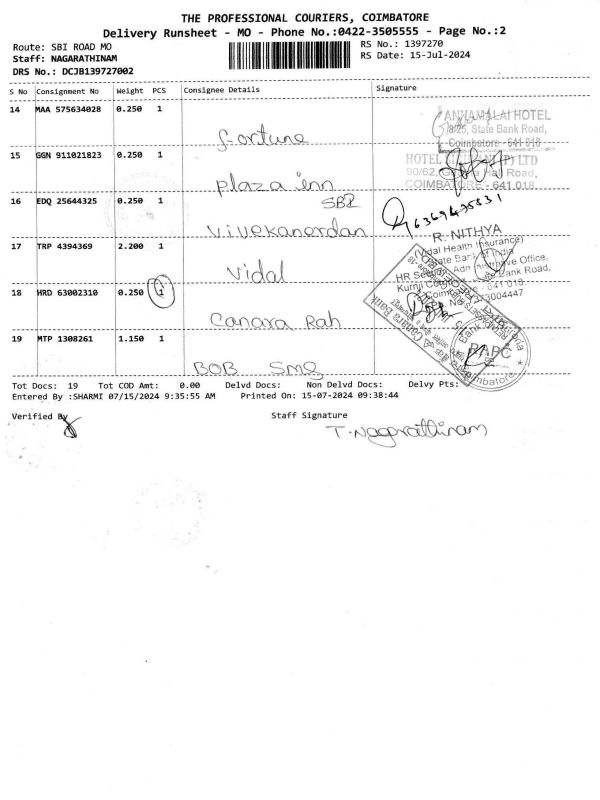 THE PROFESSIONAL COURIERS, COIMBATORE
Delivery Runsheet - MO - Phone No.:0422-3505555 - Page No.:2
Route: SBI ROAD MO
RS No.: 1397270
Staff: NAGARATHINAM
RS Date: 15-Jul-2024
DRS No.: DCJB139727002
S No Consignment No Weight PCS Consignee Details Signature
14 MAA 575634028 0.250 1
fortune
ANNAMALAI HOTEL
State Bank Road,
Coimbatore - 641 018
15 GGN 911021823 0.250 1
Plaza inn
HOTEL (P) LTD
90/62, Road,
COIMBATORE - 641 018
16 EDQ 25644325 0.250 1
SBI
Vivekanandan
17 TRP 4394369 2.200 1
Vidal
R. NITHYA
Vidal Health Insurance)
State Bank of India
Administrative Office,
State Bank Road,
18 HRD 63002310 0.250 1
Canara Rah
Canara Bank
19 MTP 1308261 1.150 1
BOB SMS
Tot Docs: 19 Tot COD Amt: 0.00 Delvd Docs: Non Delvd Docs: Delvy Pts:
Entered By :SHARMI 07/15/2024 9:35:55 AM Printed On: 15-07-2024 09:38:44
Verified By
Staff Signature
T. Nagarathinam